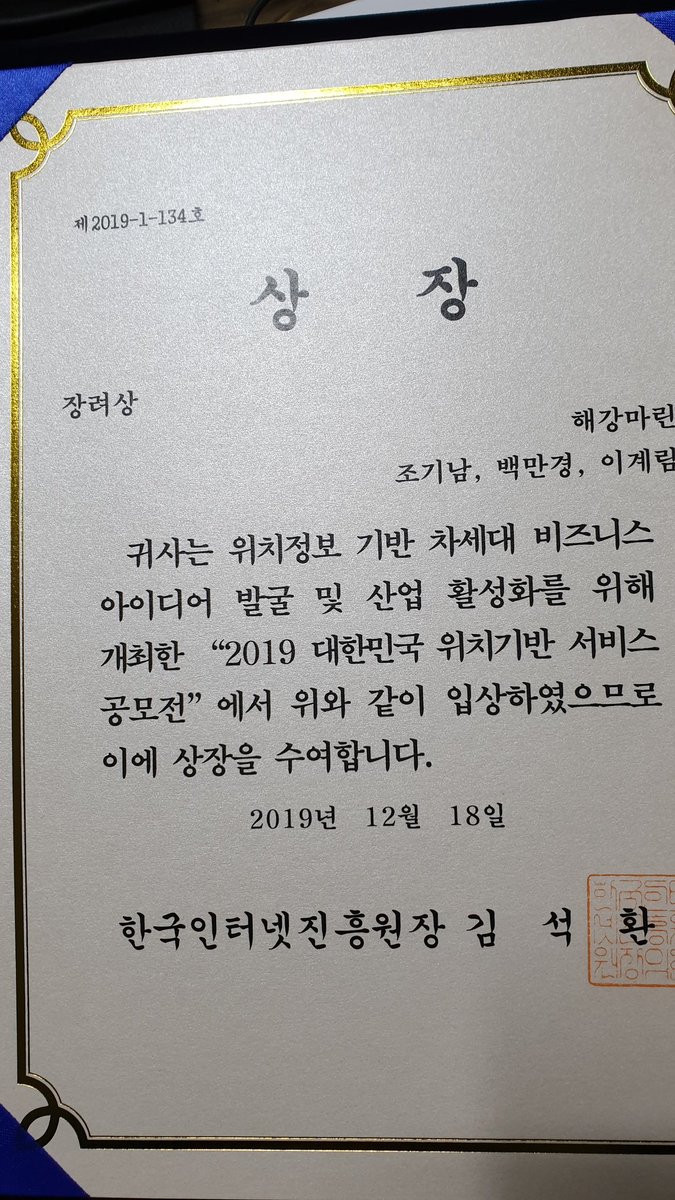 제2019-1-134호
상 장
장려상
해강마린
조기남, 백만경, 이계림
귀사는 위치정보 기반 차세대 비즈니스
아이디어 발굴 및 산업 활성화를 위해
개최한 “2019 대한민국 위치기반 서비스
공모전” 에서 위와 같이 입상하였으므로
이에 상장을 수여합니다.
2019년 12월 18일
한국인터넷진흥원장 김 석 환